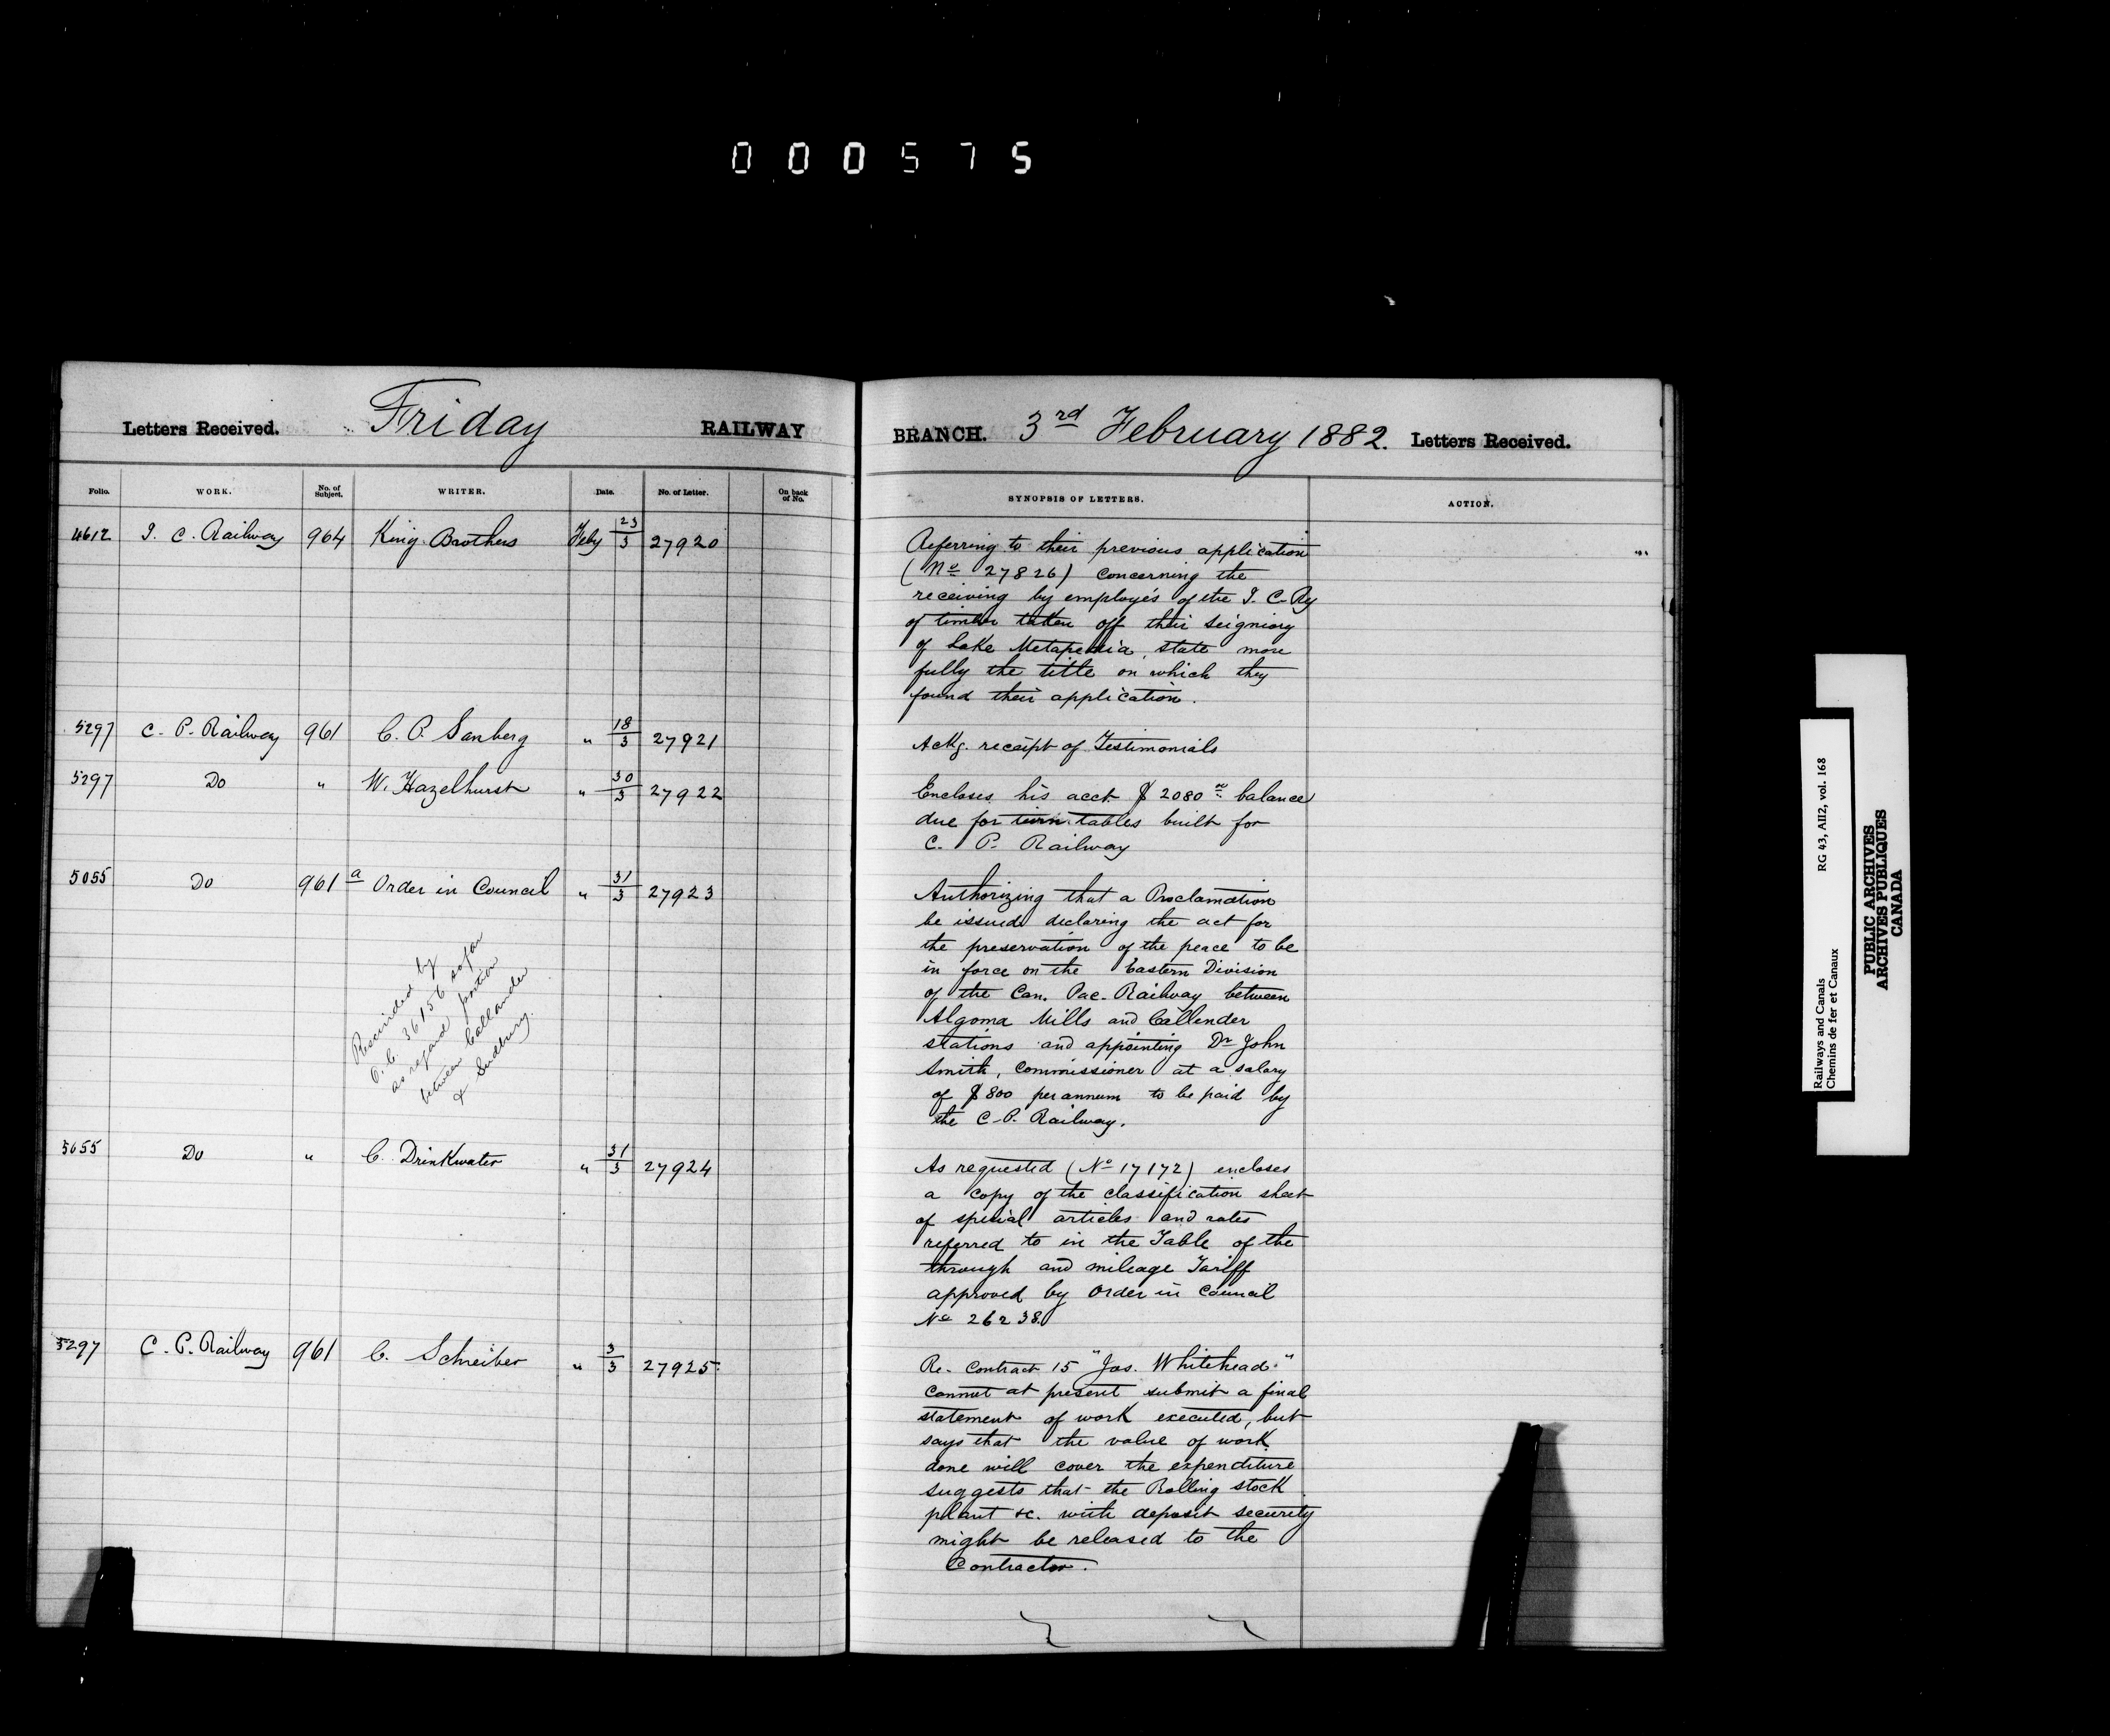 000575
Letters Received. Friday RAILWAY
BRANCH. 3rd February 1882. Letters Received.
Folio. WORK. No. of Subject. WRITER. Date. No. of Letter. On back of No.
SYNOPSIS OF LETTERS. ACTION.
4612 I. C. Railway 964 King Brothers Feby 23/3 27920
Referring to their previous application
(No 27826) concerning the
receiving by employés of the I. C. Ry
of timber taken off their Seigniory
of Lake Metapedia, state more
fully the title on which they
found their application.
5297 C. P. Railway 961 C. P. Sanberg " 18/3 27921
Ackg. receipt of Testimonials
5297 Do " W. Hazelhurst " 30/3 27922
Encloses his acct. $2080 00 balance
due for turn tables built for
C. P. Railway
5055 Do 961 a Order in Council " 31/3 27923
Authorizing that a Proclamation
be issued declaring the act for
the preservation of the peace to be
in force on the Eastern Division
of the Can. Pac. Railway between
Algoma Mills and Callender
stations and appointing Dr John
Smith, Commissioner at a salary
of $800 per annum to be paid by
the C. P. Railway.
Rescinded by
O.C. 36156 so far
as regard portion
between Callander
& Sudbury.
5655 Do " C. Drinkwater " 31/3 27924
As requested (No 17172) encloses
a copy of the classification sheet
of special articles and rates
referred to in the Table of the
through and mileage Tariff
approved by Order in Council
No 26238.
5297 C. P. Railway 961 C. Schreiber " 3/3 27925
Re- Contract 15 "Jos. Whitehead."
Cannot at present submit a final
statement of work executed, but
says that the value of work
done will cover the expenditure
suggests that the Rolling stock
plant &c. with deposit security
might be released to the
Contractor.
Railways and Canals RG 43, AII2, vol. 168
Chemins de fer et Canaux
PUBLIC ARCHIVES
ARCHIVES PUBLIQUES
CANADA